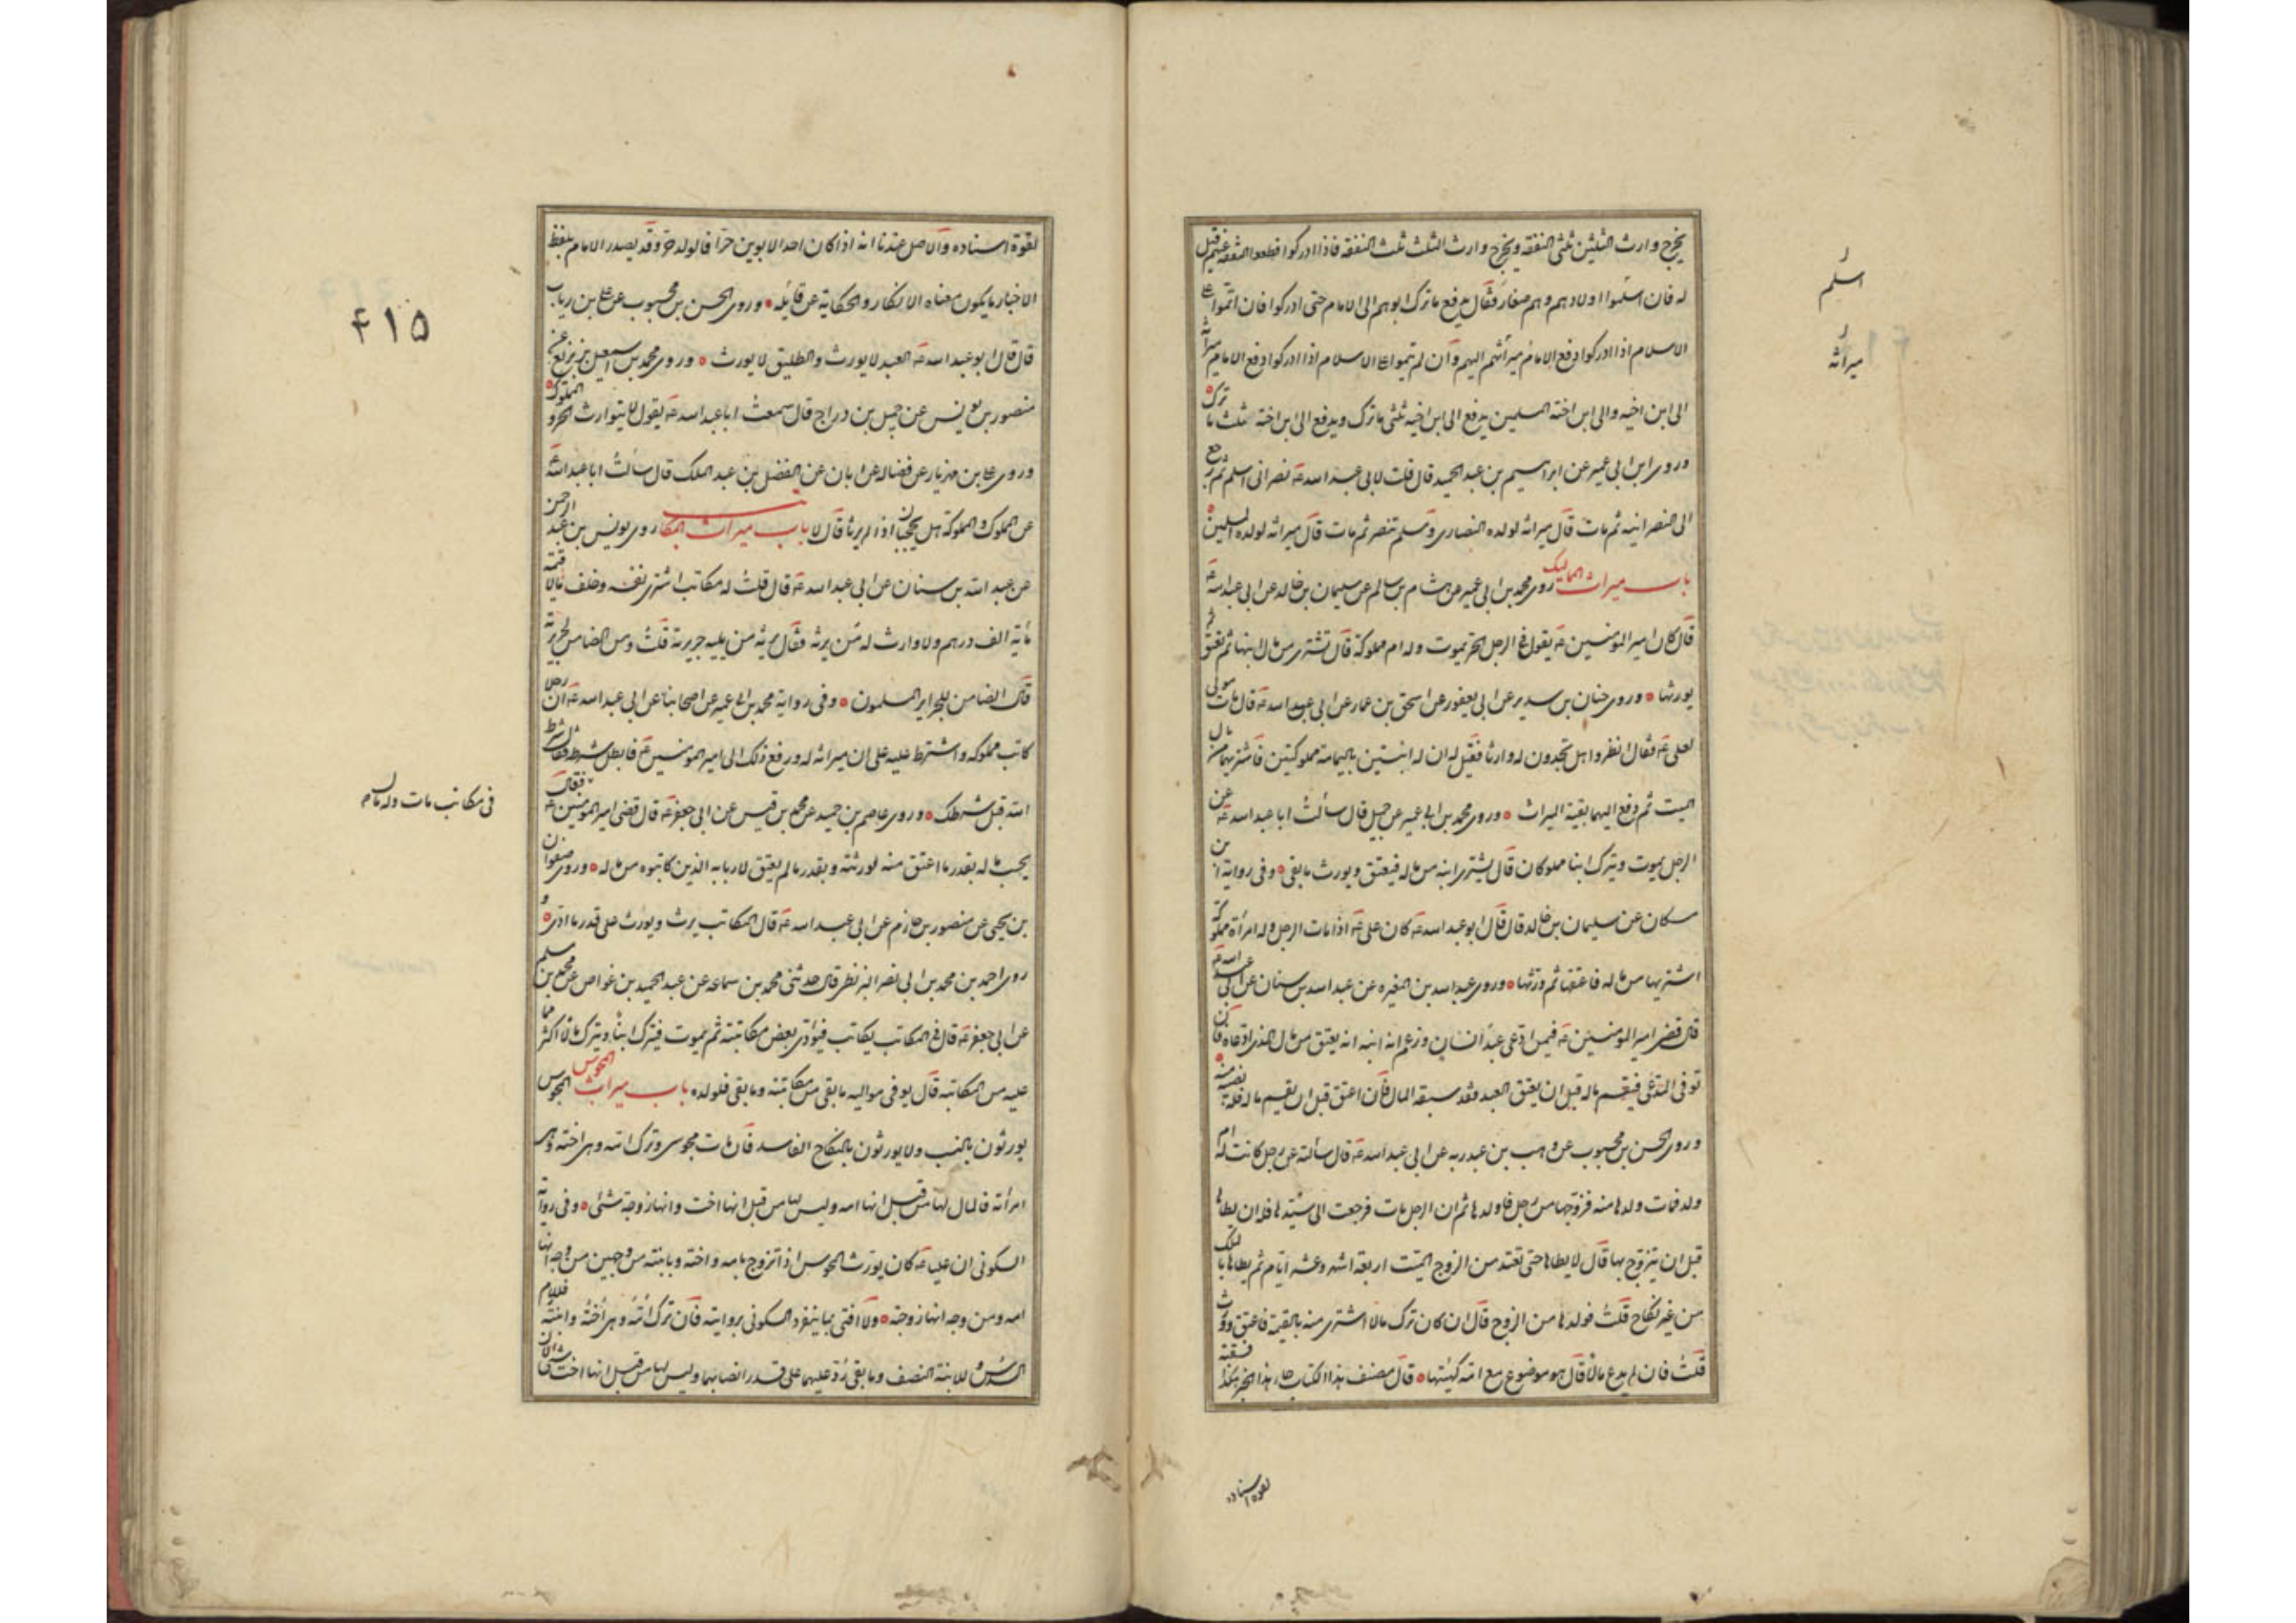 يخرج وارث الثلثين ثلثى النفقه ويخرج وارث الثلث ثلث النفقه فاذا ادركوا قطعوا النفقه عنهم قيل
له فان اسلموا اولادهم وهم صغار فقال يدفع ما ترك ابوهم الى الامام حتى ادركوا فان اتموا على
الاسلام اذا ادركوا دفع الامام ميراثهم اليهم وان لم يتموا على الاسلام اذا ادركوا دفع الامام ميراثه
الى ابن اخيه والى ابن اخته المسلمين يدفع الى ابن اخيه ثلثى ما ترك ويدفع الى ابن اخته ثلث ما ترك
وروى ابن ابى عمير عن ابراهيم بن عبد الحميد قال قلت لابى عبد الله ع نصرانى اسلم ثم رجع
الى النصرانيه ثم مات قال ميراثه لولده النصارى ومسلم تنصر ثم مات قال ميراثه لولده المسلمين
باب ميراث المماليك روى محمد بن ابى عمير عن هشام بن سالم عن سليمان بن خالد عن ابى عبد الله ع
قال كان امير المؤمنين ع يقول فى الرجل الحر يموت وله ام مملوكة قال تشترى من مال ابنها ثم تعتق ثم
يورثها وروى حنان بن سدير عن ابى يعفور عن اسحق بن عمار عن ابى عبد الله ع قال مات مولى
لعلى ع فقال انظروا هل تجدون له وارثا فقيل له ان له ابنتين باليمامة مملوكتين فاشتريهما من مال
الميت ثم دفع اليهما بقية الميراث وروى محمد بن ابى عمير عن جميل قال سألت ابا عبد الله ع عن
الرجل يموت ويترك ابنا مملوكا قال يشترى ابنه من ماله فيعتق ويورث ما بقى وفى رواية ابن
مسكان عن سليمان بن خالد قال قال ابو عبد الله ع كان على ع اذا مات الرجل وله امرأة مملوكة
اشتريها من ماله فاعتقها ثم ورثها وروى عبد الله بن المغيره عن عبد الله بن سنان عن ابى عبد الله ع
قال قضى امير المؤمنين ع فيمن ادعى عبد انسان وزعم انه ابنه انه يعتق من مال الذى ادعاه فان
توفى المدعى فيقسم ماله قبل ان يعتق العبد فقد سبقه المال فان اعتق قبل ان يقسم ماله فله نصيبه منه
وروى الحسن بن محبوب عن وهب بن عبد ربه عن ابى عبد الله ع قال سألته عن رجل كانت له ام
ولد فمات ولدها منه فزوجها من رجل فاولدها ثم ان الرجل مات فرجعت الى سيدها فله ان يطاها
قبل ان يتزوج بها قال لا يطاها حتى تعتد من الزوج الميت اربعة اشهر وعشرة ايام ثم يطاها بالملك
من غير نكاح قلت فولدها من الزوج قال ان كان ترك مالا اشترى منه بالقيمة فاعتق وورث
قلت فان لم يدع مالا قال هو موضوع مع امه كهيئتها قال مصنف هذا الكتاب جاء هذا الخبر هكذا
اسلم
ميراثه
لقوة اسناده
لقوة اسناده والاصل عندنا انه اذا كان احد الابوين حرا فالولد حر وقد يصدر الامام بلفظ
الاخبار ما يكون معناه الانكار والحكاية عن قائله وروى الحسن بن محبوب عن على بن رياب
قال قال ابو عبد الله ع العبد لا يورث والطليق لا يورث وروى محمد بن اسمعيل بن بزيع عن
منصور بن يونس عن جميل بن دراج قال سمعت ابا عبد الله ع يقول لا يتوارث الحر والمملوك
وروى على بن مهزيار عن فضاله عن ابان عن الفضل بن عبد الملك قال سألت ابا عبد الله ع
عن المملوك والمملوكة هل يحجبان اذا لم يرثا قال لا باب ميراث المكاتب روى يونس بن عبد الرحمن
عن عبد الله بن سنان عن ابى عبد الله ع قال قلت له مكاتب اشترى نفسه وخلف مالا قيمته
مأية الف درهم ولا وارث له من يرثه فقال يرثه من يليه جريرته قلت ومن الضامن لجريرته
قال الضامن للجراير المسلمون وفى رواية محمد بن ابى عمير عن اصحابنا عن ابى عبد الله ع ان رجلا
كاتب مملوكه واشترط عليه على ان ميراثه له ورفع ذلك الى امير المؤمنين ع فابطل شرطه فقال شرط
الله قبل شرطك وروى عاصم بن حميد عن محمد بن قيس عن ابى جعفر ع قال قضى امير المؤمنين ع فقال
يحسب ماله بقدر ما اعتق منه لورثته وبقدر ما لم يعتق لاربابه الذين كاتبوه من ماله وروى صفوان
بن يحيى عن منصور بن حازم عن ابى عبد الله ع قال المكاتب يرث ويورث على قدر ما ادى و
روى احمد بن محمد بن ابى نصر البزنطى قال حدثنى محمد بن سماعه عن عبد الحميد بن غواص عن محمد بن مسلم
عن ابى جعفر ع قال فى المكاتب يكاتب فيؤدى بعض مكاتبته ثم يموت فيترك ابنا ويترك مالا اكثر مما
عليه من المكاتبه قال يوفى مواليه ما بقى من مكاتبته وما بقى فلولده باب ميراث المجوس المجوس
يورثون بالنسب ولا يورثون بالنكاح الفاسد فان مات مجوسى وترك امه وهى اخته وهى
امرأته فالمال لها من قبل انها امه وليس لها من قبل انها اخت وانها زوجة شئ وفى رواية
السكونى ان عليا ع كان يورث المجوس اذا تزوج بامه واخته وبابنته من وجهين من وجه انها
امه ومن وجه انها زوجته ولا افتى بما ينفرد السكونى بروايته فان ترك امه وهى اخته وابنته فللام
السدس وللابنة النصف وما بقى رد عليهما على قدر انصابهما وليس لها من قبل انها اخت شئ لان
۴۱۵
فى مكاتب مات وله مال